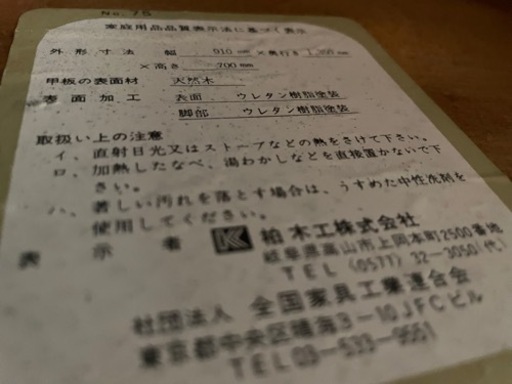 No. 75
家庭用品品質表示法に基づく表示
外形寸法 幅 910mm×奥行き1,350mm
×高さ 700mm
甲板の表面材 天然木
表面加工 表面 ウレタン樹脂塗装
脚部 ウレタン樹脂塗装
取扱い上の注意
イ、直射日光又はストーブなどの熱をさけて下さい。
ロ、加熱したなべ、湯わかしなどを直接置かないで下
さい。
ハ、著しい汚れを落とす場合は、うすめた中性洗剤を
使用してください。
表示者 K 柏木工株式会社
岐阜県高山市上岡本町2500番地
TEL (0577) 32-3050(代)
社団法人 全国家具工業連合会
東京都中央区晴海3-10JFCビル
TEL03-533-9551